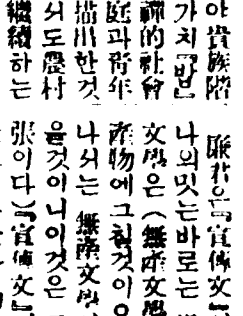 아 貴族階
가치『밥』
的社會
庭과靑年
描出한것
서도農村
繼續하는
君은『宣傳文』
나의밋는바로는
文學은(無産文學
産物에그칠것이오
나서는 無産文學
을것이니이것은
張이다)『宣傳文』